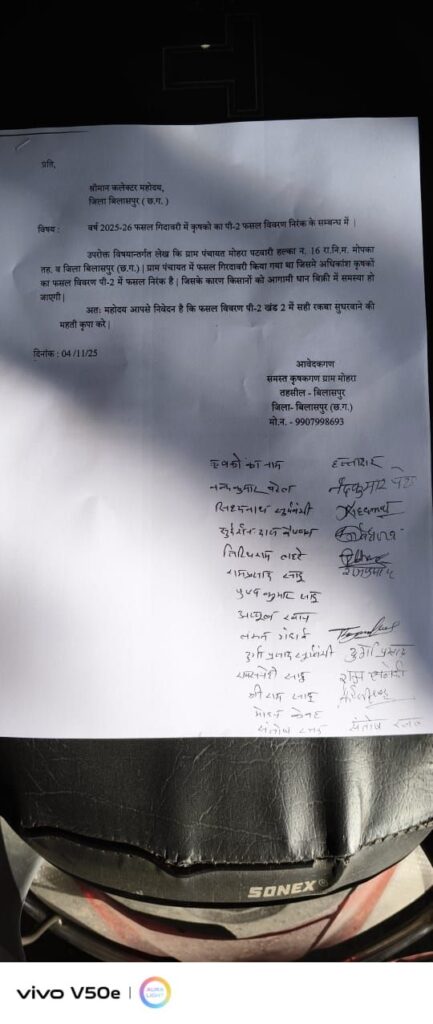 प्रति,
श्रीमान कलेक्टर महोदय,
जिला बिलासपुर ( छ.ग. )
विषय : वर्ष 2025-26 फसल गिदावरी में कृषको का पी-2 फसल विवरण निरंक के सम्बन्ध में |
उपरोक्त विषयान्तर्गत लेख कि ग्राम पंचायत मोहरा पटवारी हल्का न. 16 रा.नि.म. मोपका
तह. व जिला बिलासपुर (छ.ग.) | ग्राम पंचायत में फसल गिरदावरी किया गया था जिसमे अधिकांश कृषकों
का फसल विवरण पी-2 में फसल निरंक है | जिसके कारण किसानों को आगामी धान बिक्री में समस्या हो
जाएगी |
अतः महोदय आपसे निवेदन है कि फसल विवरण पी-2 खंड 2 में सही रकबा सुधरवाने की
महती कृपा करे |
दिनांक : 04 /11/25
आवेदकगण
समस्त कृषकगण ग्राम मोहरा
तहसील - बिलासपुर
जिला- बिलासपुर (छ.ग.)
मो.न. - 9907998693
कृषको का नाम हस्ताक्षर
नन्दकुमार
रामप्रसाद साहू
कुमार साहू
दुर्गा प्रसाद सूर्यवंशी दुर्गा प्रसाद
रामसनेही साहू
साहू
संतोष संतोष
SONEX
vivo V50e | AURA LIGHT